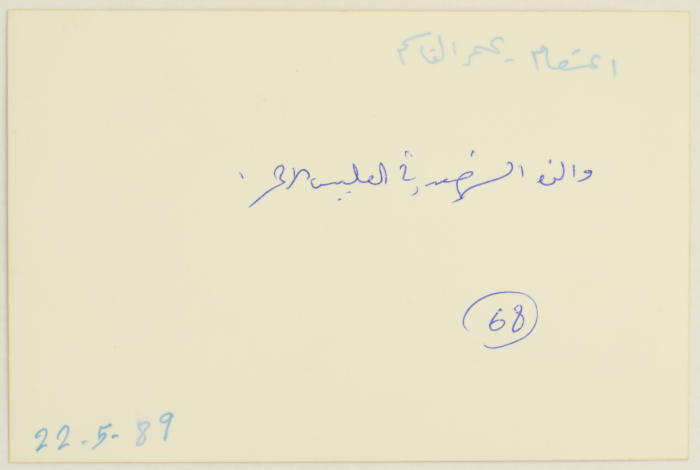 اعتصام - عمر القاسم
والدة الشهيد في الصليب الاحمر .
68
22-5-89